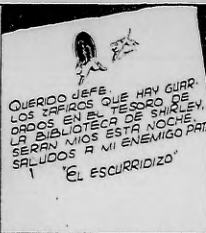 QUERIDO JEFE.
LOS ZAFIROS QUE HAY GUAR-
DADOS EN EL TESORO DE
LA BIBLIOTECA DE SHIRLEY,
SERAN MIOS ESTA NOCHE.
SALUDOS A MI ENEMIGO PAT.
"EL ESCURRIDIZO"